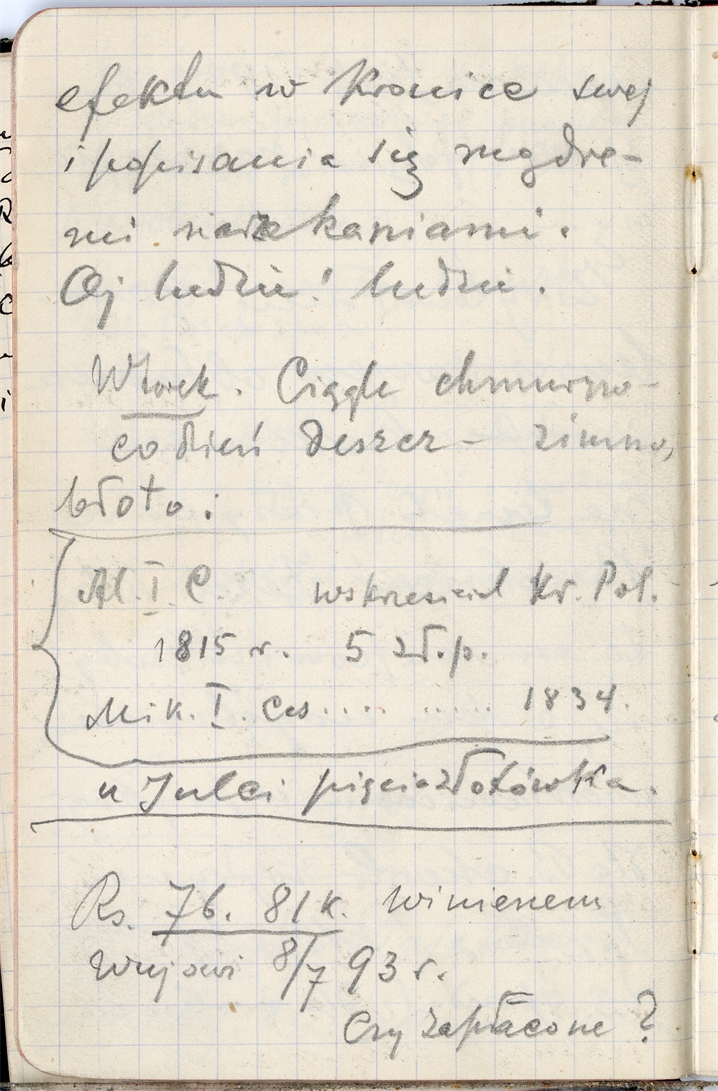 efektu w Kronice swej
i popisania się mądre-
mi narzekaniami.
Oj ludzie! ludzie.
Wtorek. Ciągle chmurno -
codzień deszcz - zimno,
błoto.
Al. I. C. wskrzesiciel Kr. Pol.
1815 r. 5 zł.p.
Mik. I. Ces.... ..... 1834.
u Julci pięciozłotówka.
Rs. 76. 81 k. winienem
Wujowi 8/7 93 r.
Czy zapłacone?